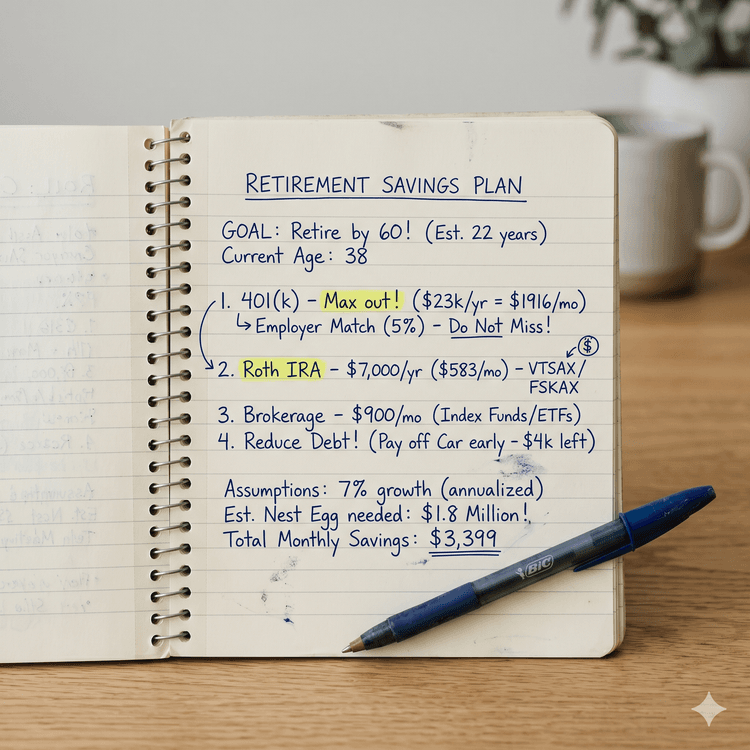 RETIREMENT SAVINGS PLAN
GOAL: Retire by 60! (Est. 22 years)
Current Age: 38
1. 401(k) – Max out! ($23k/yr = $1916/mo)
↳ Employer Match (5%) – Do Not Miss!
$
2. Roth IRA – $7,000/yr ($583/mo) – VTSAX/
FSKAX
3. Brokerage – $900/mo (Index Funds/ETFs)
4. Reduce Debt! (Pay off Car early – $4k left)
Assumptions: 7% growth (annualized)
Est. Nest Egg needed: $1.8 Million!
Total Monthly Savings: $3,399
BIC